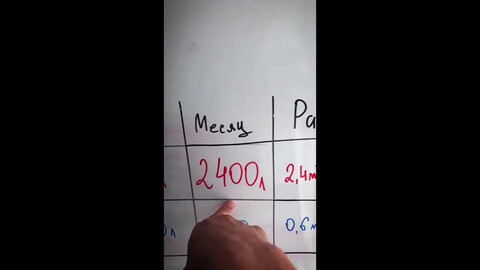 Месяц Ра
л 2400л 2,4м
л 0,6м